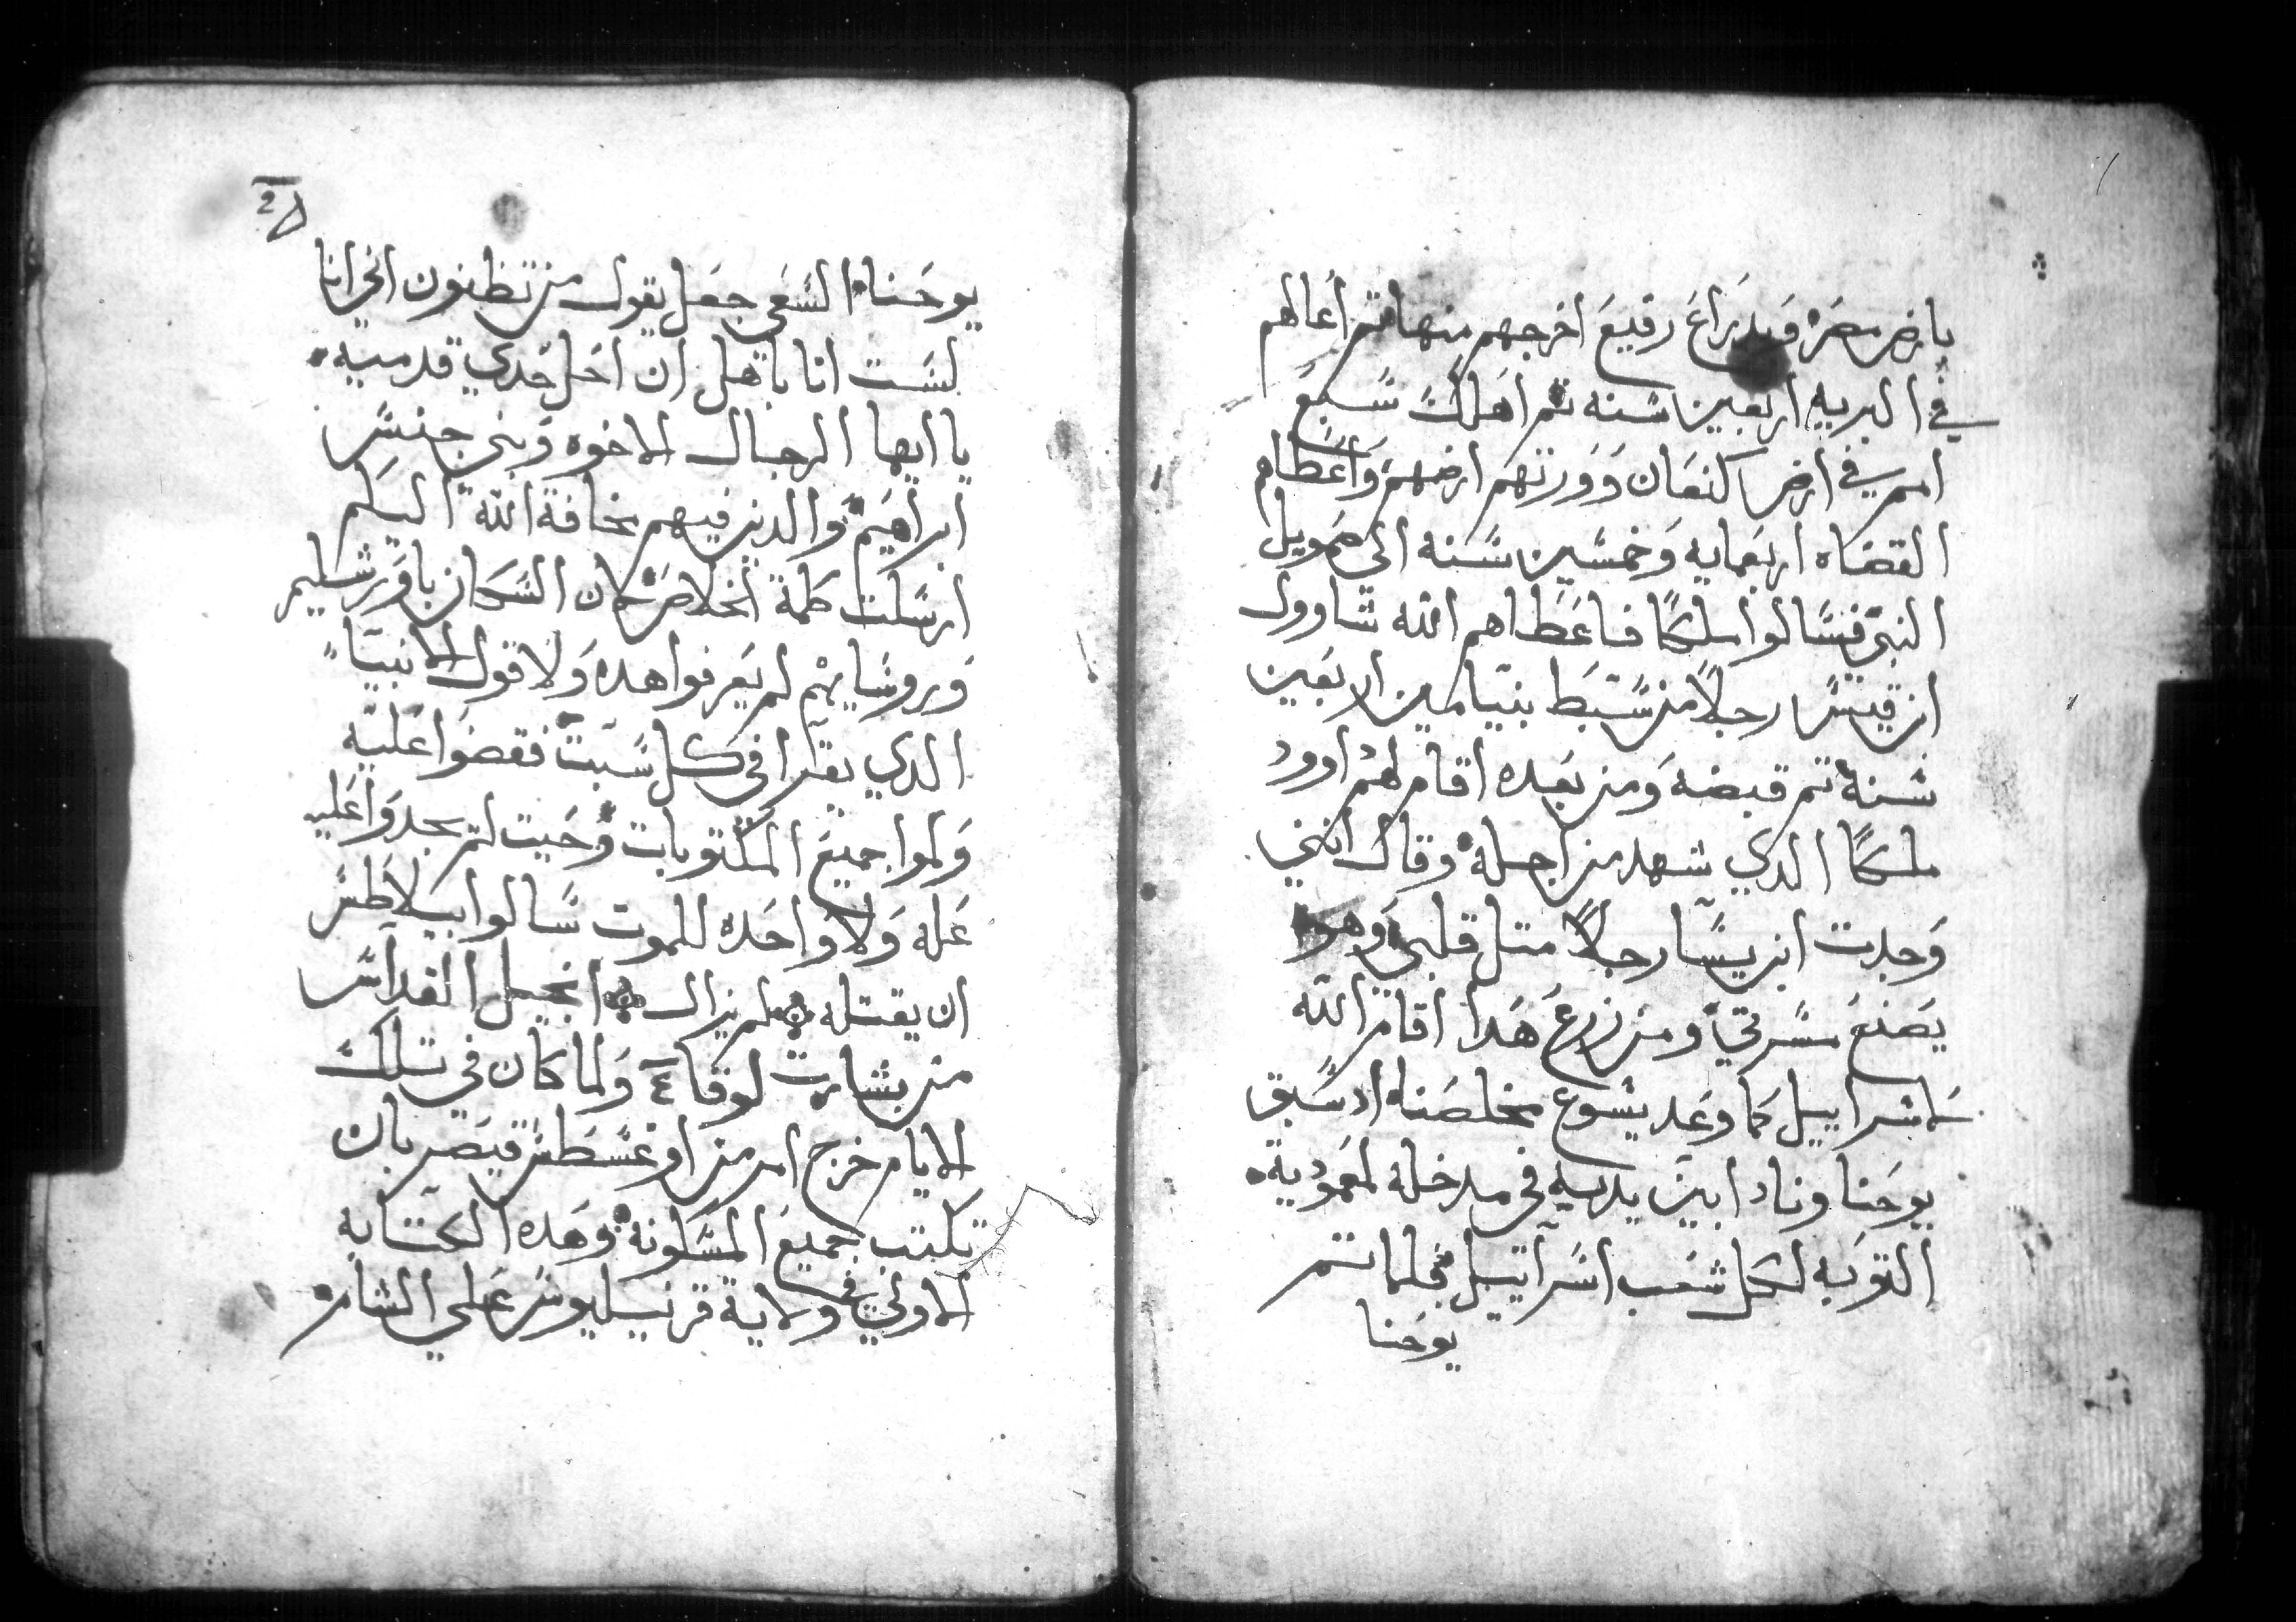 بارض مصر وبدراع رفيع اخرجهم منها تم اعالهم
في البريه اربعين سنه تم اهلك سبع
امم في ارض كنعان وورتهم ارضهم واعطاهم
القضاه اربعمايه وخمسين سنه الى صمويل
النبي فسالوا ملكا فاعطاهم الله شاوول
ابن قيس رجلا من سبط بنيامين اربعين
سنه تم قبضه ومن بعده اقام لهم داوود
ملكا الدي شهد من اجله وقال انني
وجدت ابن يسا رجلا متل قلبي وهو
يصنع مسرتي ومن زرع هدا اقام الله
لاسراييل كما وعد يسوع مخلصنا اد سبق
يوحنا ونادا بين يديه في مدخله لمعمودية
التوبه لكل شعب اسراييل فلما تم
يوحنا
يوحنا السعي جعل يقول من تظنون اني انا
لست انا باهل ان احل حدي قدميه
يا ايها الرجال الاخوه وبني جنس
ابراهيم والدين فيهم مخافة الله اليكم
ارسلت كلمة الخلاص لان السكان باورشليم
وروسايهم لم يعرفوا هده ولا قول الانبيا
الدي يقرا في كل سبت فقضوا عليه
وكملوا جميع المكتوبات وحيت لم يجدوا عليه
عله ولا واحده للموت سالوا بيلاطس
ان يقتله لم يزال انجيل القداس
من بشارت لوقا ولما كان في تلك
الايام خرج امر من اوغسطس قيصر بان
تكتب جميع المسكونه وهده الكتابه
الاولي في ولاية قرنيليوس علي الشام